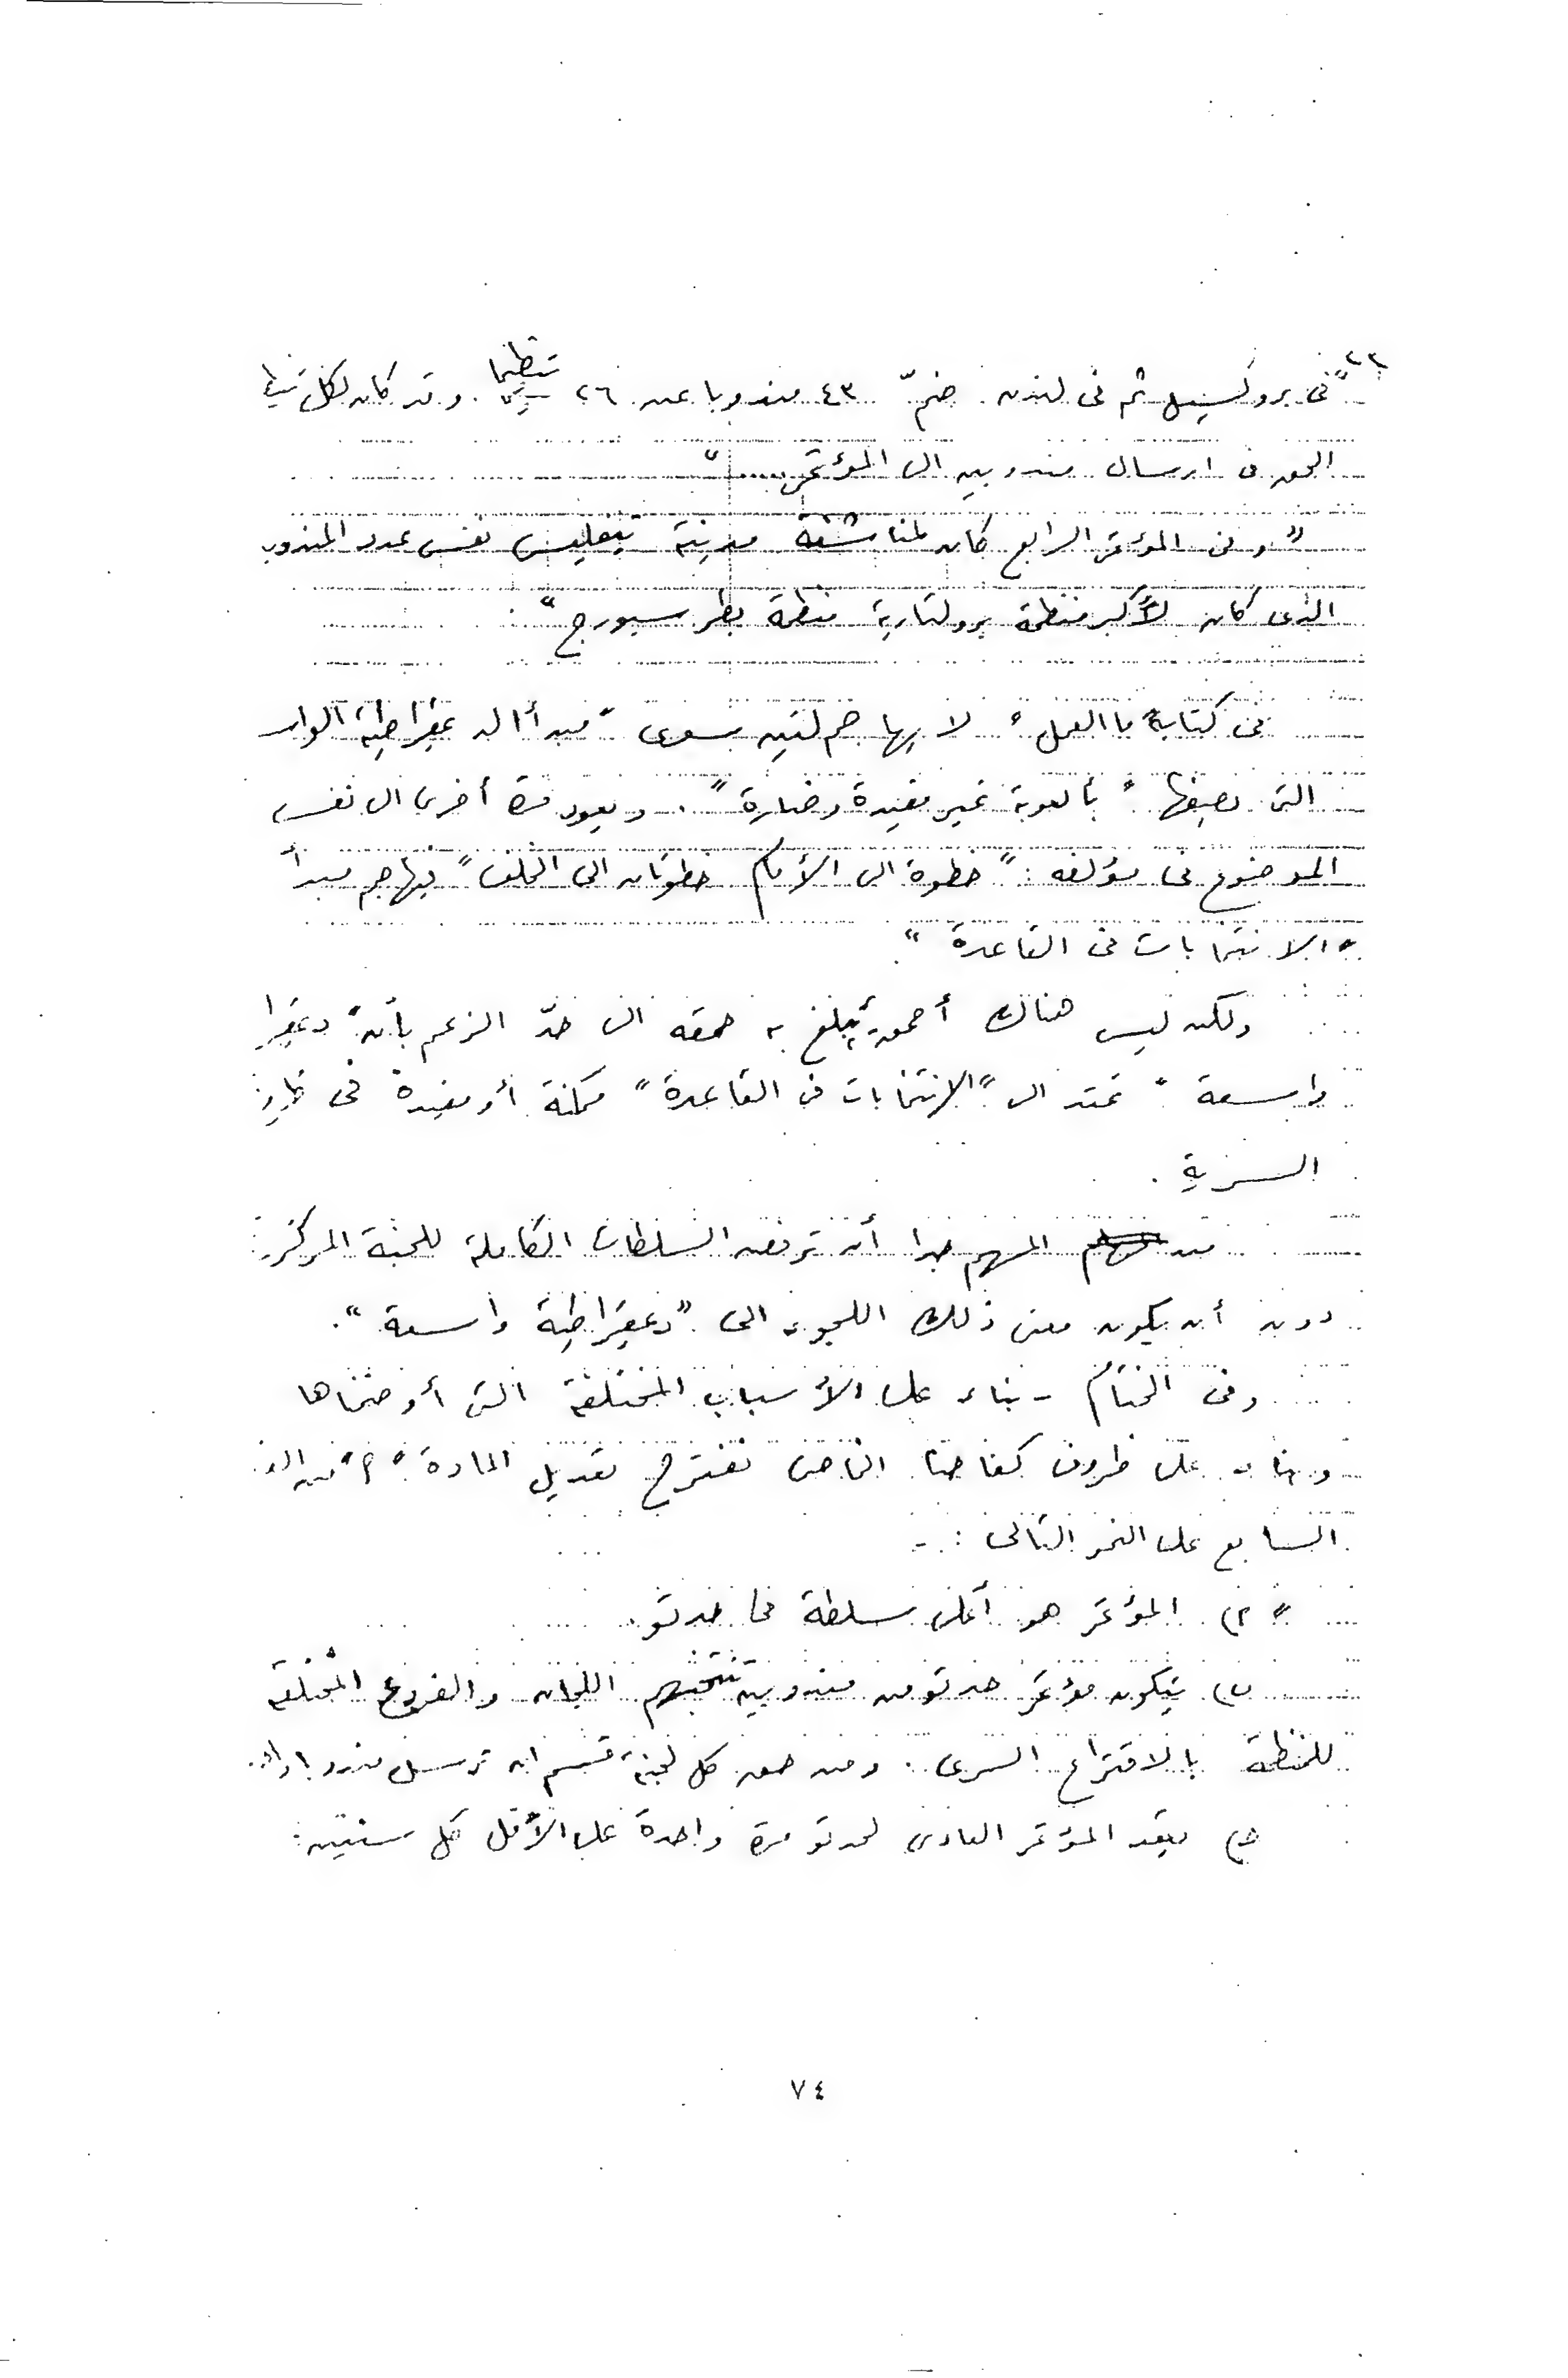 ٢٢
"فى بروكسيل ثم فى لندن. ضمّ ٤٣ مندوبا عن ٢٦ تنظيما. وقد كان لكل تنظيم
الحق فى ارسال مندوبين الى المؤتمر ....."
"وفى المؤتمر الرابع كان لمناشفة مدينة تيفليس نفس عدد المندوبين
الذى كان لأكبر منظمة برولتارية منظمة بطرسبورج".
فى كتابه "ما العمل" لا يهاجم لنين سوى "مبدأ الديمقراطية الواسعة
التى يصفها "بألعوبة غير مفيدة وضارة". ويعود مرة أخرى الى نفس
الموضوع فى مؤلفه: "خطوة الى الأمام خطوتان الى الخلف" فيهاجم مبدأ
"الانتخابات فى القاعدة".
ولكن ليس هناك أحمق يبلغ به حمقه الى حدّ الزعم بأن "ديمقراطية
واسعة" تمتد الى "الانتخابات فى القاعدة" ممكنة أو مفيدة فى ظروف
السرية.
من المهم جدا أن ترفض السلطات الكاملة للجنة المركزية
دون أن يكون معنى ذلك اللجوء الى "ديمقراطية واسعة".
وفى الختام - بناء على الأسباب المختلفة التى أوضحناها
وبناء على ظروف كفاحنا الخاص نقترح تعديل المادة "٢" من
السابع على النحو التالى :-
"ا) المؤتمر هو أعلى سلطة فى حدتو.
ب) يتكون مؤتمر حدتو من مندوبين تنتخبهم اللجان والفروع المختلفة
للمنظمة بالاقتراع السرى. ومن حق كل لجنة قسم ان ترسل مندوبا
ج) يعقد المؤتمر العادى لحدتو مرة واحدة على الأقل كل سنتين:
٧٤